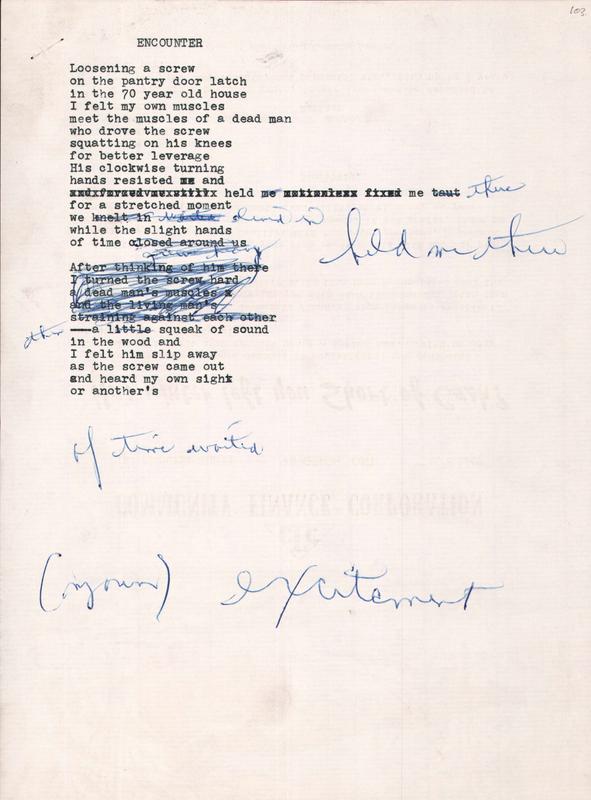 103
ENCOUNTER
Loosening a screw
on the pantry door latch
in the 70 year old house
I felt my own muscles
meet the muscles of a dead man
who drove the screw
squatting on his knees
for better leverage
His clockwise turning
hands resisted me and
and forced me still held me motionless fixed me taut there
for a stretched moment
we knelt in
while the slight hands
of time closed around us
held me there
After thinking of him there
I turned the screw hard
a dead man's muscles x
and the living man's
straining against each other
—a little squeak of sound
in the wood and
I felt him slip away
as the screw came out
and heard my own sight
or another's
of time waited
excitement